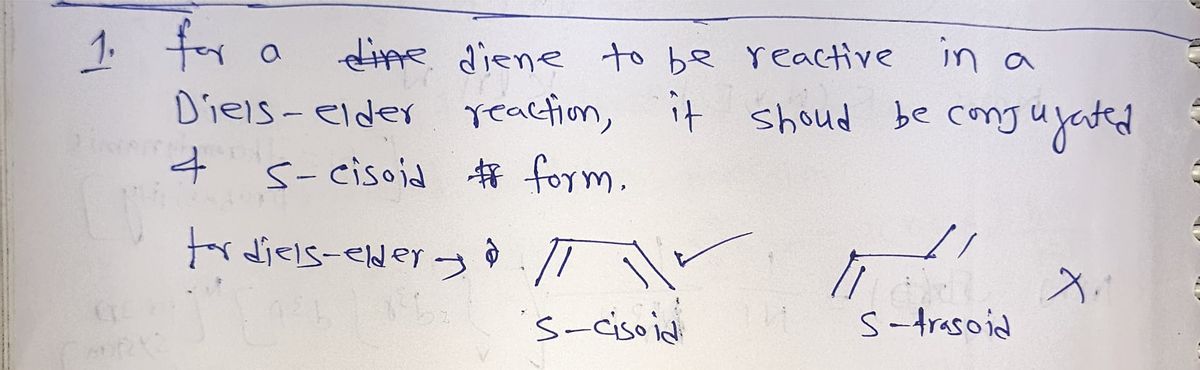 1. for a diene to be reactive in a
Diels-elder reaction, it shoud be conjugated
& s-cisoid form.
for diels-elder →
✓
X.
s-cisoid
s-trasoid